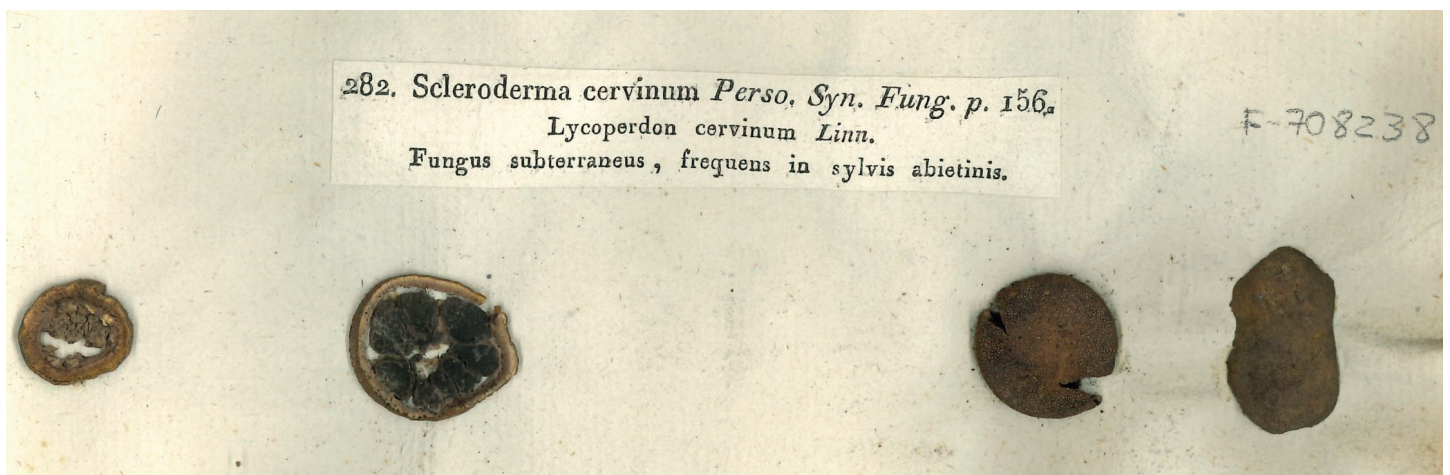 282. Scleroderma cervinum Perso. Syn. Fung. p. 156.
Lycoperdon cervinum Linn.
Fungus subterraneus, frequens in sylvis abietinis.
F-708238